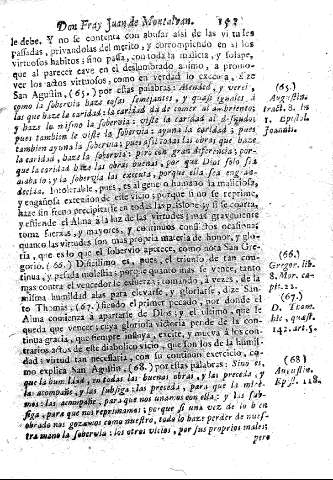 Don Fray Juan de Montalvan. 152
le debe. Y no se contenta con abusar assi de las virtudes
passadas, privandolas del merito, y corrompiendo en si los
virtuosos habitos; sino passa, con toda la malicia, y
que al parecer cave en el deslumbrado animo, a
ver los actos virtuosos, como en verdad lo
San Agustin, (65.) por estas palabras: Atended, y vereis,
como la sobervia haze cosas semejantes, y quasi iguales à
las que haze la caridad: la caridad dà de comer al hambriento;
y haze lo mismo la sobervia: viste la caridad al desnudo;
pues tambien le viste la sobervia: ayuna la caridad; pues
tambien ayuna la sobervia; pues assi todas las obras que haze
la caridad, haze la sobervia; pero con gran diferencia; por-
que la caridad haze las obras buenas, por que Dios solo sea
alabado; y la sobervia las executa, porque ella sea engran-
decida. Intolerable, pues, es al genero humano la maliciosa,
y engañosa execucion de este vicio; porque si no se reprime,
haze sin freno precipitarse en todas las passiones; y si se corta,
y estiende el Alma à la luz de las virtudes; mas gravemente
toma fuerzas, y mayores, y continuos combates ocasionan
quanto las virtudes son mas propria materia de honor, y glo-
ria, que es lo que el sobervio apetece, como nota San Gre-
gorio. (66.) Dificultoso es, pues, el triunfo de tan con-
tinua, y pesada molestia; porque quanto mas se vence, tanto
mas contra el vencedor se esfuerza; tomando, à vezes, de la
misma humildad alas para elevarse, y gloriarse; dize San-
to Thomas, (67.) siendo el primer pecado, por donde el
Alma comienza à apartarse de Dios; y el ultimo, que le
queda que vencer; cuya gloriosa victoria pende de la con-
tinua gracia, que siempre influye, excite, y mueva à los con-
trarios actos de este diabolico vicio, que son los de la humil-
dad; virtud tan necessaria, con su continuo exercicio, co-
mo explica San Agustin (68.) por estas palabras: Sino es,
que la humildad, à todas las buenas obras, y las preceda, y
las acompañe, y las subsiga; las preceda, para que la mire-
mos: las acompañe, para que nos unamos con ella: y las subsi-
ga, para que nos reprimamos; porque si una vez de lo bien
obrado nos gozamos como nuestro, todo lo haze perder de nues-
tra mano la sobervia: los otros vicios, por sus proprios males;
pero
(65.)
Augustin.
tract. 8. in
1. Epistol.
Joannis.
(66.)
Gregor. lib.
8. Mor. ca-
pit. 22.
(67.)
D. Thom.
quæst.
142. art. 5.
(68)
Augustin.
Epist. 118.